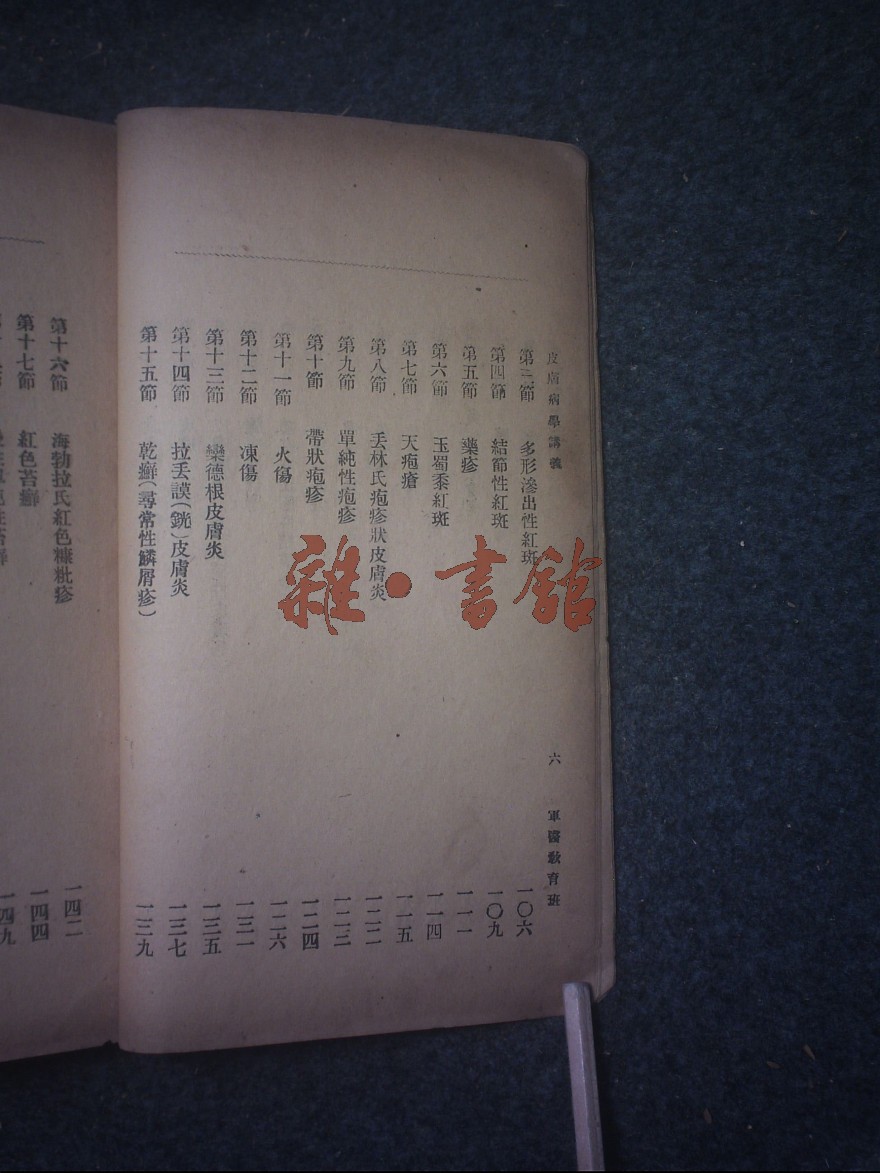 皮膚病學講義 六 軍醫教育班
第三節 多形滲出性紅斑 一〇六
第四節 結節性紅斑 一〇九
第五節 藥疹 一一一
第六節 玉蜀黍紅斑 一一四
第七節 天疱瘡 一一五
第八節 丟林氏疱疹狀皮膚炎 一二二
第九節 單純性疱疹 一二三
第十節 帶狀疱疹 一二四
第十一節 火傷 一二六
第十二節 凍傷 一三一
第十三節 欒德根皮膚炎 一三五
第十四節 拉丟謨(銧)皮膚炎 一三七
第十五節 乾癬(尋常性鱗屑疹) 一三九
第十六節 海勃拉氏紅色糠粃疹 一四二
第十七節 紅色苔癬 一四四
一四九
雜·書館